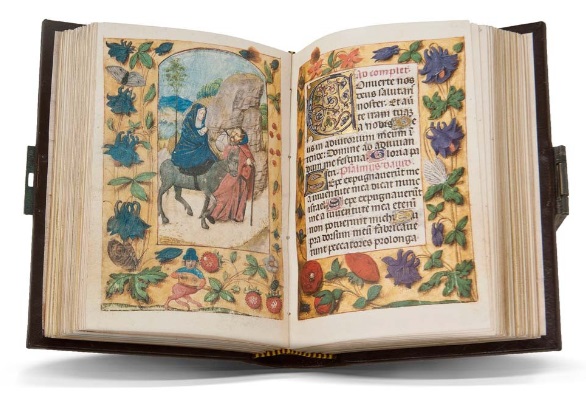 Ad complet.
Conuerte nos
deus salutari
noster. Et auer
te iram tuaz
a nobis
us in adiutorium meum i
Domine ad adiuuan
dum me festina Gloria pa
tri. psalmus dauid
Sepe expugnauerunt me
a iuuentute mea dicat nunc
israel Sepe expugnauerunt
me a iuuentute mea eteni
non potuerunt michi
pra dorsum meū fabricaue
runt peccatores prolonga